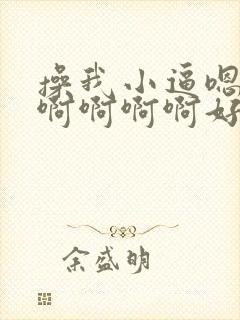 操我小逼嗯
啊啊啊啊好
余盛明